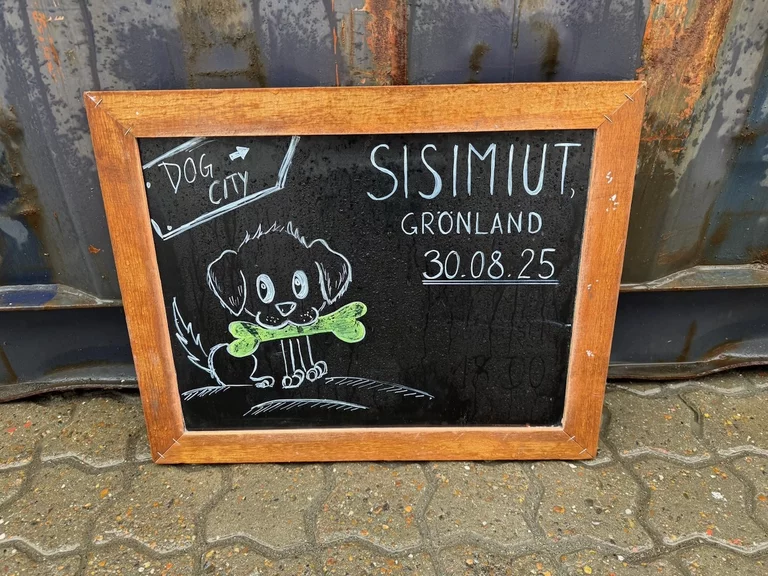 DOG
CITY
SISIMIUT,
GRÖNLAND
30.08.25
18:00